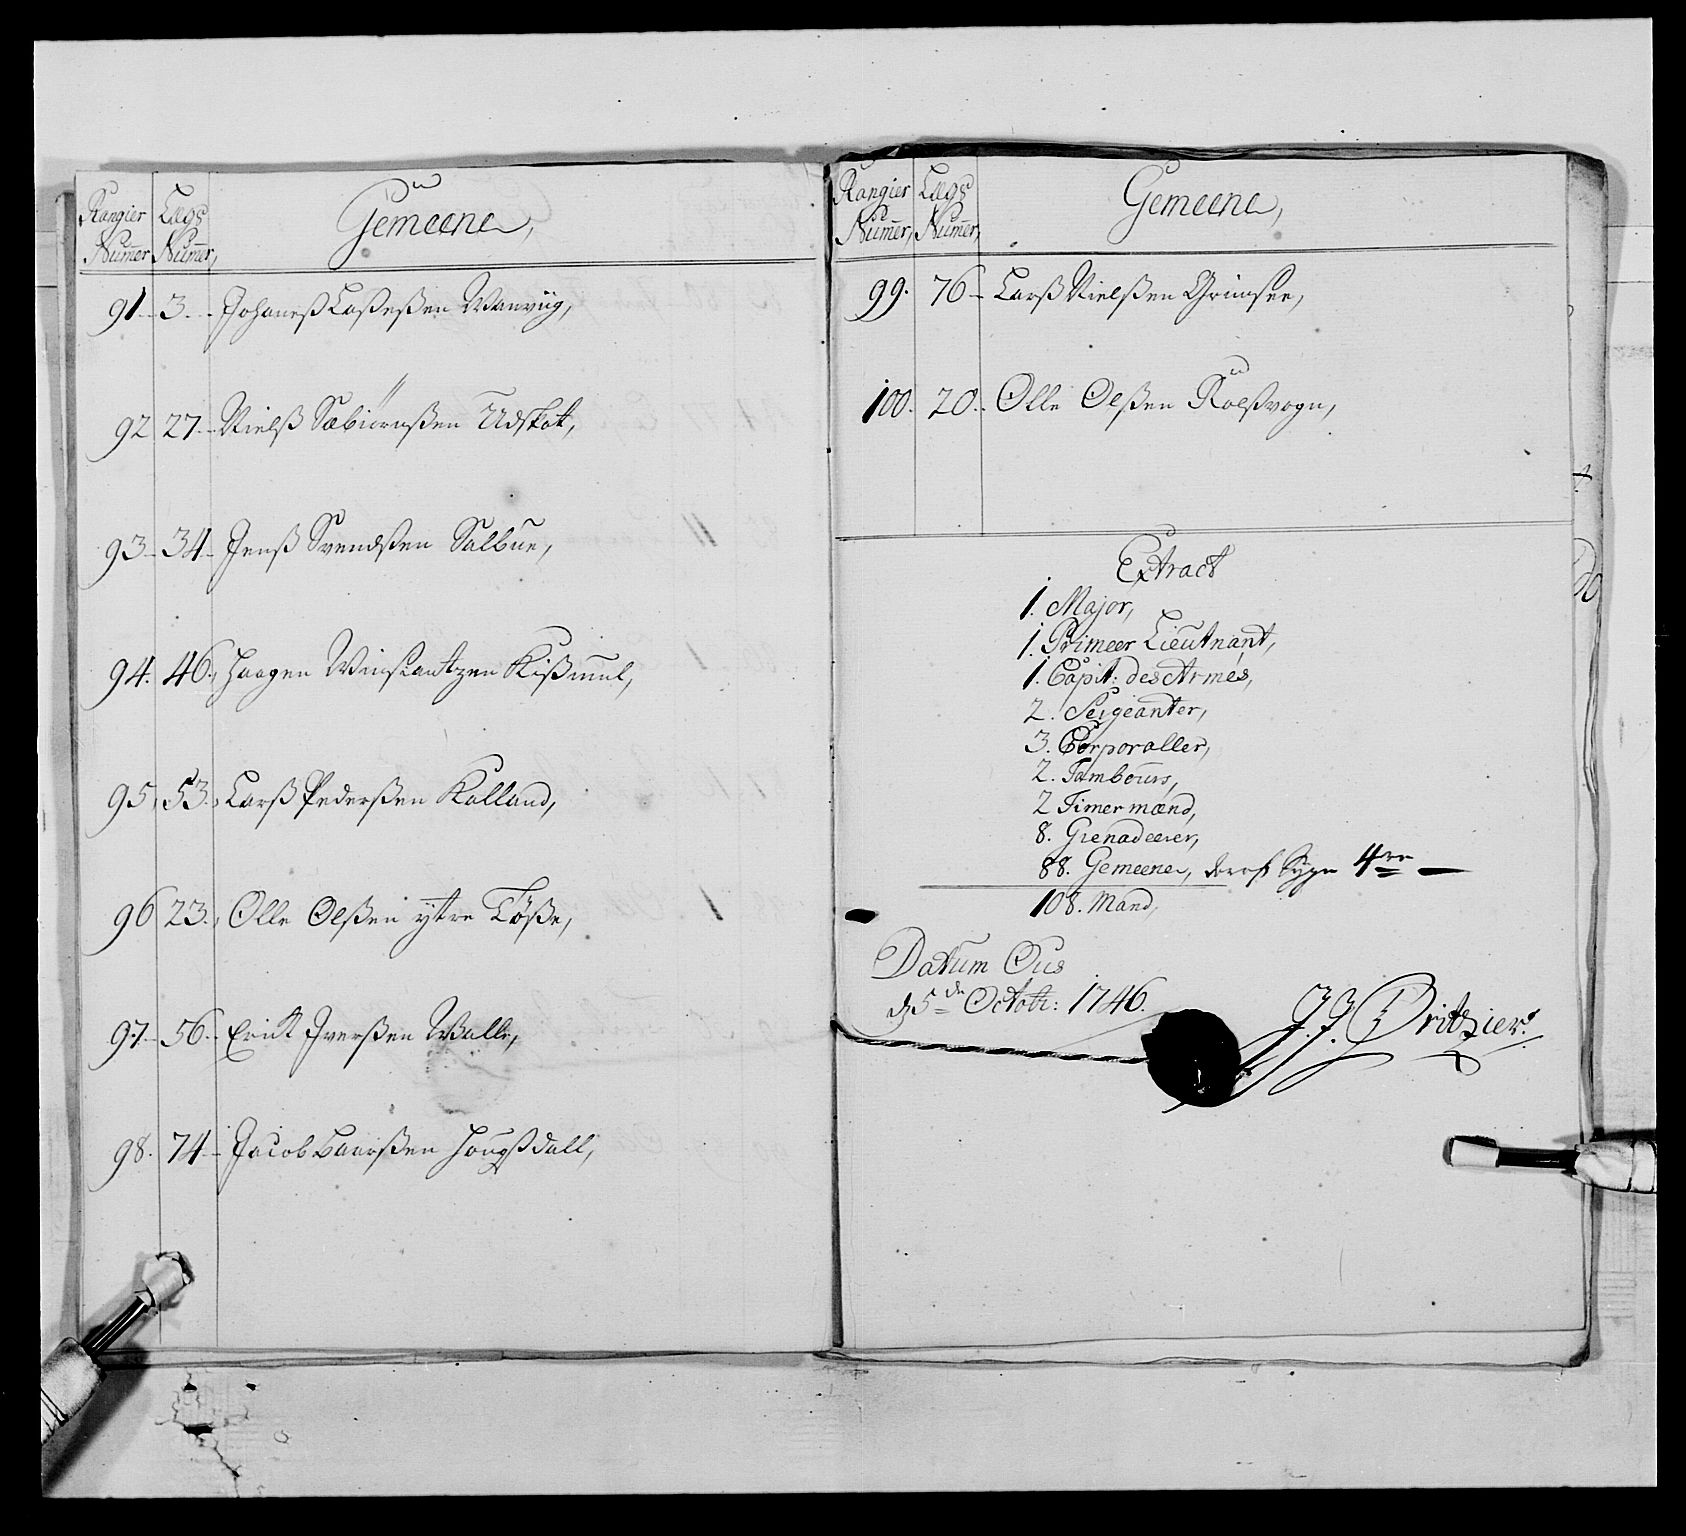 Rangier Numer Lægs Numer, Gemeene,
91. 3. Johanes Lasesen Wanvüg,
92 27. Niels Sæbiörnsen Udskot,
93. 34. Jens Svendsen Salbue,
94. 46. Haagen Winsiantzen
95. 53. Lars Pedersen Kalland,
96 23. Olle Olsen ÿtre Tøsse,
97. 56. Erick Iversen Walle,
98. 74. Jacob Larsen Hougsdall,
Rangier Numer, Lægs Numer, Gemeene,
99. 76 Lars Nielsen Grimsee,
100. 20. Olle Olsen Rolsvogn,
Extract
1. Major,
1. Primeer Lieutnant,
1. Capit: des Armes,
2. Sergeanter,
3. Corporaller,
2. Tambours,
2 Timermænd,
8. Grenadeerer,
88. Gemeene, deraf Syge 4re
108. Mand,
Datum Ous
d 5de Octobr: 1746.
J. J. Dritzier.